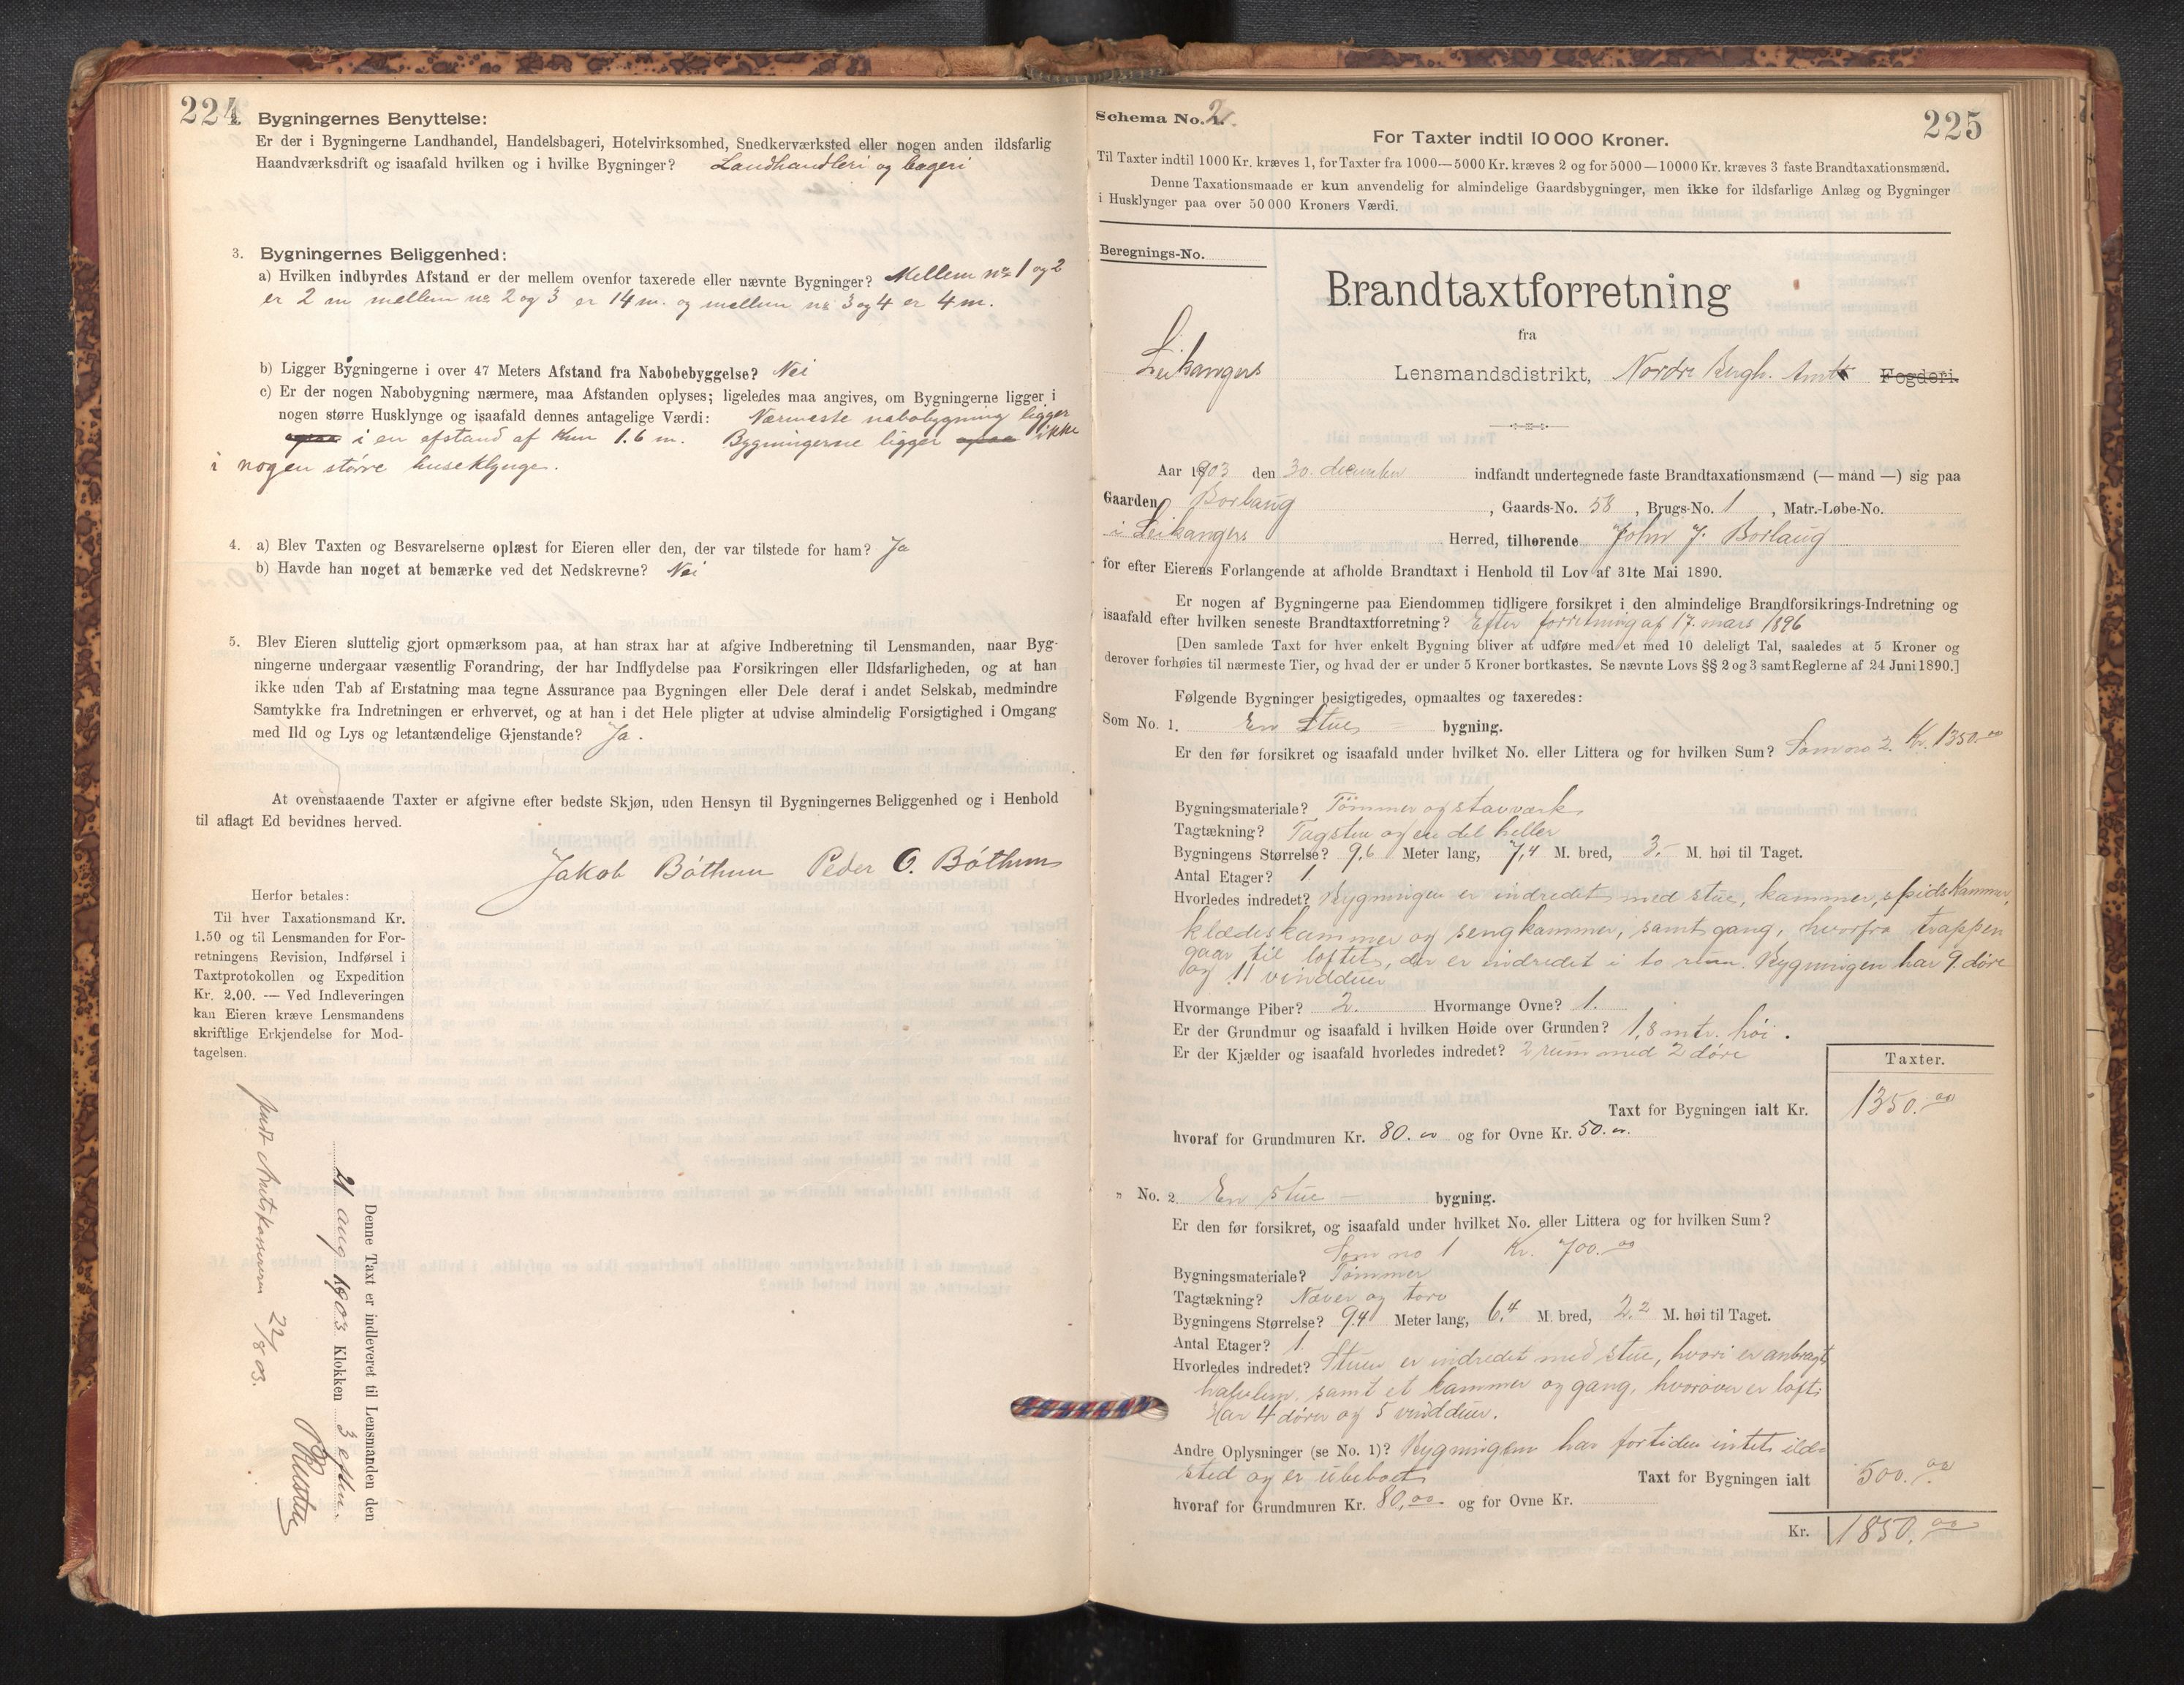 224
Bygningernes Benyttelse:
Er der i Bygningerne Landhandel, Handelsbageri, Hotelvirksomhed, Snedkerværksted eller nogen anden ildsfarlig
Haandværksdrift og isaafald hvilken og i hvilke Bygninger? Landhandleri og bageri
3. Bygningernes Beliggenhed:
a) Hvilken indbyrdes Afstand er der mellem ovenfor taxerede eller nævnte Bygninger? Mellem no 1 og 2
er 2 m mellem no 2 og 3 er 14 m. og mellem no 3 og 4 er 4 m.
b) Ligger Bygningerne i over 47 Meters Afstand fra Nabobebyggelse? Nei
c) Er der nogen Nabobygning nærmere, maa Afstanden oplyses; ligeledes maa angives, om Bygningerne ligger i
nogen større Husklynge og isaafald dennes antagelige Værdi: Nærmeste nabobygning ligger
i en afstand af kun 1.6 m. Bygningerne ligger ikke
i nogen större huseklynge.
4. a) Blev Taxten og Besvarelserne oplæst for Eieren eller den, der var tilstede for ham? Ja
b) Havde han noget at bemærke ved det Nedskrevne? Nei
5. Blev Eieren sluttelig gjort opmærksom paa, at han strax har at afgive Indberetning til Lensmanden, naar Byg-
ningerne undergaar væsentlig Forandring, der har Indflydelse paa Forsikringen eller Ildsfarligheden, og at han
ikke uden Tab af Erstatning maa tegne Assurance paa Bygningen eller Dele deraf i andet Selskab, medmindre
Samtykke fra Indretningen er erhvervet, og at han i det Hele pligter at udvise almindelig Forsigtighed i Omgang
med Ild og Lys og letantændelige Gjenstande? Ja.
At ovenstaaende Taxter er afgivne efter bedste Skjøn, uden Hensyn til Bygningernes Beliggenhed og i Henhold
til aflagt Ed bevidnes herved.
Jakob Böthun Peder O. Böthun
Herfor betales:
Til hver Taxationsmand Kr.
1.50 og til Lensmanden for For-
retningens Revision, Indførsel i
Taxtprotokollen og Expedition
Kr. 2.00. — Ved Indleveringen
kan Eieren kræve Lensmandens
skriftlige Erkjendelse for Mod-
tagelsen.
Denne Taxt er indleveret til Lensmanden den
21 aug 1903. Klokken 3 efter.
sendt Amtskassereren 22/8 03.
225
Schema No. 2.
For Taxter indtil 10 000 Kroner.
Til Taxter indtil 1000 Kr. kræves 1, for Taxter fra 1000—5000 Kr. kræves 2 og for 5000—10000 Kr. kræves 3 faste Brandtaxationsmænd.
Denne Taxationsmaade er kun anvendelig for almindelige Gaardsbygninger, men ikke for ildsfarlige Anlæg og Bygninger
i Husklynger paa over 50 000 Kroners Værdi.
Beregnings-No.
Brandtaxtforretning
fra
Leikangers Lensmandsdistrikt, Nordre Bergh. Amt Fogderi.
Aar 1903 den 30. december indfandt undertegnede faste Brandtaxationsmænd (—mand—) sig paa
Gaarden Borlaug, Gaards-No. 58, Brugs-No. 1, Matr.-Løbe-No.
i Leikangers Herred, tilhørende John J. Borlaug
for efter Eierens Forlangende at afholde Brandtaxt i Henhold til Lov af 31te Mai 1890.
Er nogen af Bygningerne paa Eiendommen tidligere forsikret i den almindelige Brandforsikrings-Indretning og
isaafald efter hvilken seneste Brandtaxtforretning? Efter forretning af 17. mars 1896
[Den samlede Taxt for hver enkelt Bygning bliver at udføre med et med 10 deleligt Tal, saaledes at 5 Kroner og
derover forhøies til nærmeste Tier, og hvad der er under 5 Kroner bortkastes. Se nævnte Lovs §§ 2 og 3 samt Reglerne af 24 Juni 1890.]
Følgende Bygninger besigtigedes, opmaaltes og taxeredes:
Som No. 1. En Stue bygning.
Er den før forsikret og isaafald under hvilket No. eller Littera og for hvilken Sum? Som no 2. Kr. 1350.00
Bygningsmateriale? Tömmer og stavværk
Tagtækning? Tagsten og en del heller
Bygningens Størrelse? 9,6 Meter lang, 7,4 M. bred, 3.- M. høi til Taget.
Antal Etager? 1
Hvorledes indredet? Bygningen er indredet med stue, kammer, spidskammer,
klædeskammer og sengkammer, samt gang, hvorfra trappen
gaar til loftet, der er indredet i to rum. Bygningen har 9 döre
og 11 vindduer
Hvormange Piber? 2. Hvormange Ovne? 1.
Er der Grundmur og isaafald i hvilken Høide over Grunden? 1,8 mtr. höi.
Er der Kjælder og isaafald hvorledes indredet? 2 rum med 2 döre
Taxter.
Taxt for Bygningen ialt Kr. 1350.00
hvoraf for Grundmuren Kr. 80.00 og for Ovne Kr. 50.00.
" No. 2. En stue bygning.
Er den før forsikret, og isaafald under hvilket No. eller Littera og for hvilken Sum?
Som no 1 Kr. 700.00
Bygningsmateriale? Tömmer
Tagtækning? Næver og torv
Bygningens Størrelse? 9,4 Meter lang, 6,4 M. bred, 2,2 M. høi til Taget.
Antal Etager? 1
Hvorledes indredet? Stuen er indredet med stue, hvori er anbragt
halvlem, samt et kammer og gang, hvorover er loft.
Har 4 dörer og 5 vindduer.
Andre Oplysninger (se No. 1)? Bygningen har fortiden intet ild-
sted og er ubeboet
Taxt for Bygningen ialt 500.00
hvoraf for Grundmuren Kr. 80,00 og for Ovne Kr.
Kr. 1850.00